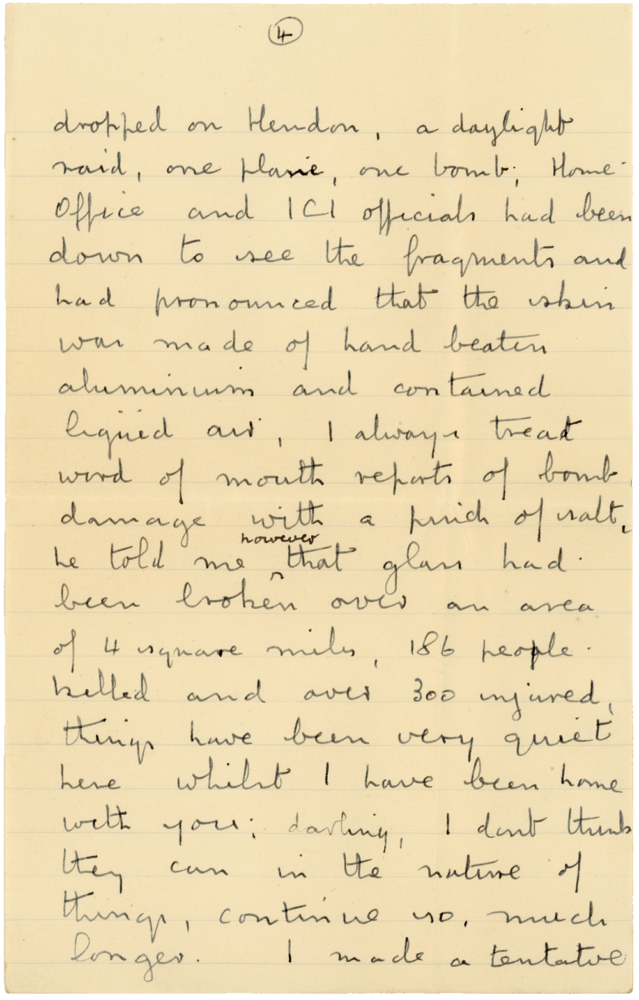 4
dropped on Hendon, a daylight
raid, one plane, one bomb; Home
Office and ICI officials had been
down to see the fragments and
had pronounced that the skin
was made of hand beaten
aluminium and contained
liquid air, I always treat
word of mouth reports of bomb
damage with a pinch of salt,
however
he told me that glass had
been broken over an area
of 4 square miles, 186 people
killed and over 300 injured,
things have been very quiet
here whilst I have been home
with you; darling, I dont think
they can in the nature of
things, continue so, much
longer. I made a tentative